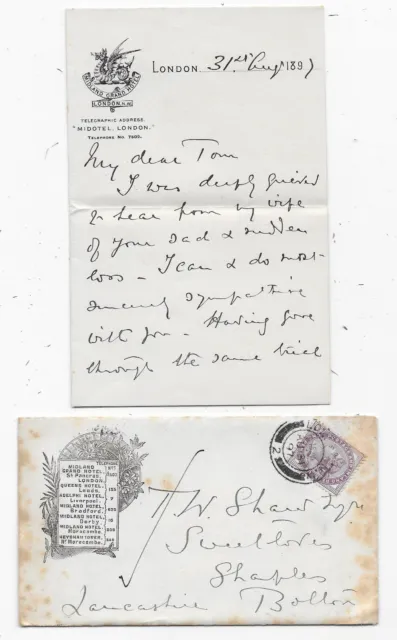 MIDLAND GRAND HOTEL
LONDON. N.W.
LONDON. 31st Augt 1897
TELEGRAPHIC ADDRESS.
"MIDOTEL, LONDON."
TELEPHONE No.
My dear Tom
I was deeply grieved
to hear from my wife
of your sad & sudden
loss - I can & do most
sincerely sympathise
with you - Having gone
through the same trial
TELEPHONE
MIDLAND
GRAND HOTEL
St. Pancras,
LONDON.
QUEENS HOTEL,
Leeds.
ADELPHI HOTEL,
Liverpool.
MIDLAND HOTEL,
Bradford.
MIDLAND HOTEL,
Derby.
MIDLAND HOTEL,
Morecambe.
HEYSHAM TOWER,
Nr. Morecambe.
2
T W. Shaw Esqre
Sweetloves
Sharples
Lancashire Bolton